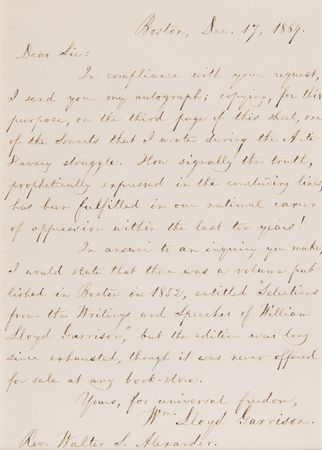 Boston, Dec. 17, 1869.
Dear Sir:
In compliance with your request,
I send you my autograph; copying, for this
purpose, on the third page of this sheet, one
of the Sonnets that I wrote during the Anti-
Slavery struggle. How signally the truth,
prophetically expressed in the concluding lines,
has been fulfilled in our national career
of oppression within the last ten years!
In answer to an inquiry you make,
I would state that there was a volume pub-
lished in Boston in 1852, entitled "Selections
from the Writings and Speeches of William
Lloyd Garrison," but the edition was long
since exhausted, though it was never offered
for sale at any book-store.
Yours, for universal freedom,
Wm. Lloyd Garrison.
Rev. Walter S. Alexander.